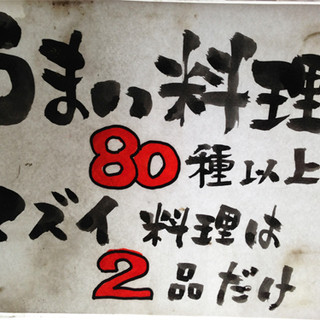 うまい料理
80種以上
マズイ料理は
2品だけ